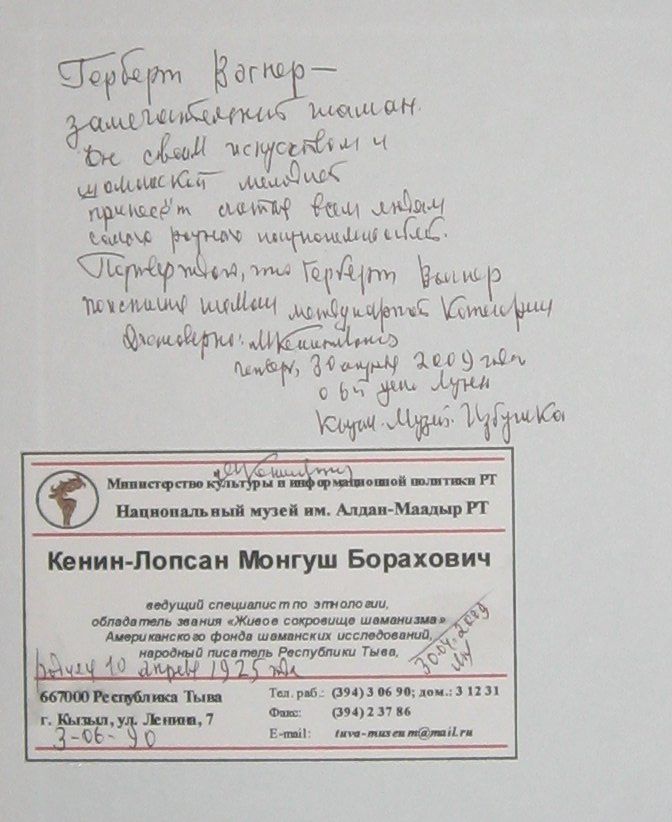 Герберт Вагнер —
замечательный шаман.
Он своим искусством и
шаманской мелодией
принесёт счастье всем людям
самого разного национальностей.
Подтверждаю, что Герберт Вагнер
шаман международной Категории
Достоверно: МКенинЛопсан
четверг, 30 апреля 2009 года
6й день Луны
Кызыл. Музей. Избушка
МКенинЛопсан
Министерство культуры и информационной политики РТ
Национальный музей им. Алдан-Маадыр РТ
Кенин-Лопсан Монгуш Борахович
ведущий специалист по этнологии,
обладатель звания «Живое сокровище шаманизма»
Американского фонда шаманских исследований,
народный писатель Республики Тыва,
30.04.2009
родился 10 апреля 1925 года
667000 Республика Тыва
г. Кызыл, ул. Ленина, 7
3-06-90
Тел. раб.: (394) 3 06 90; дом.: 3 12 31
Факс: (394) 2 37 86
E-mail: tuva-museum@mail.ru